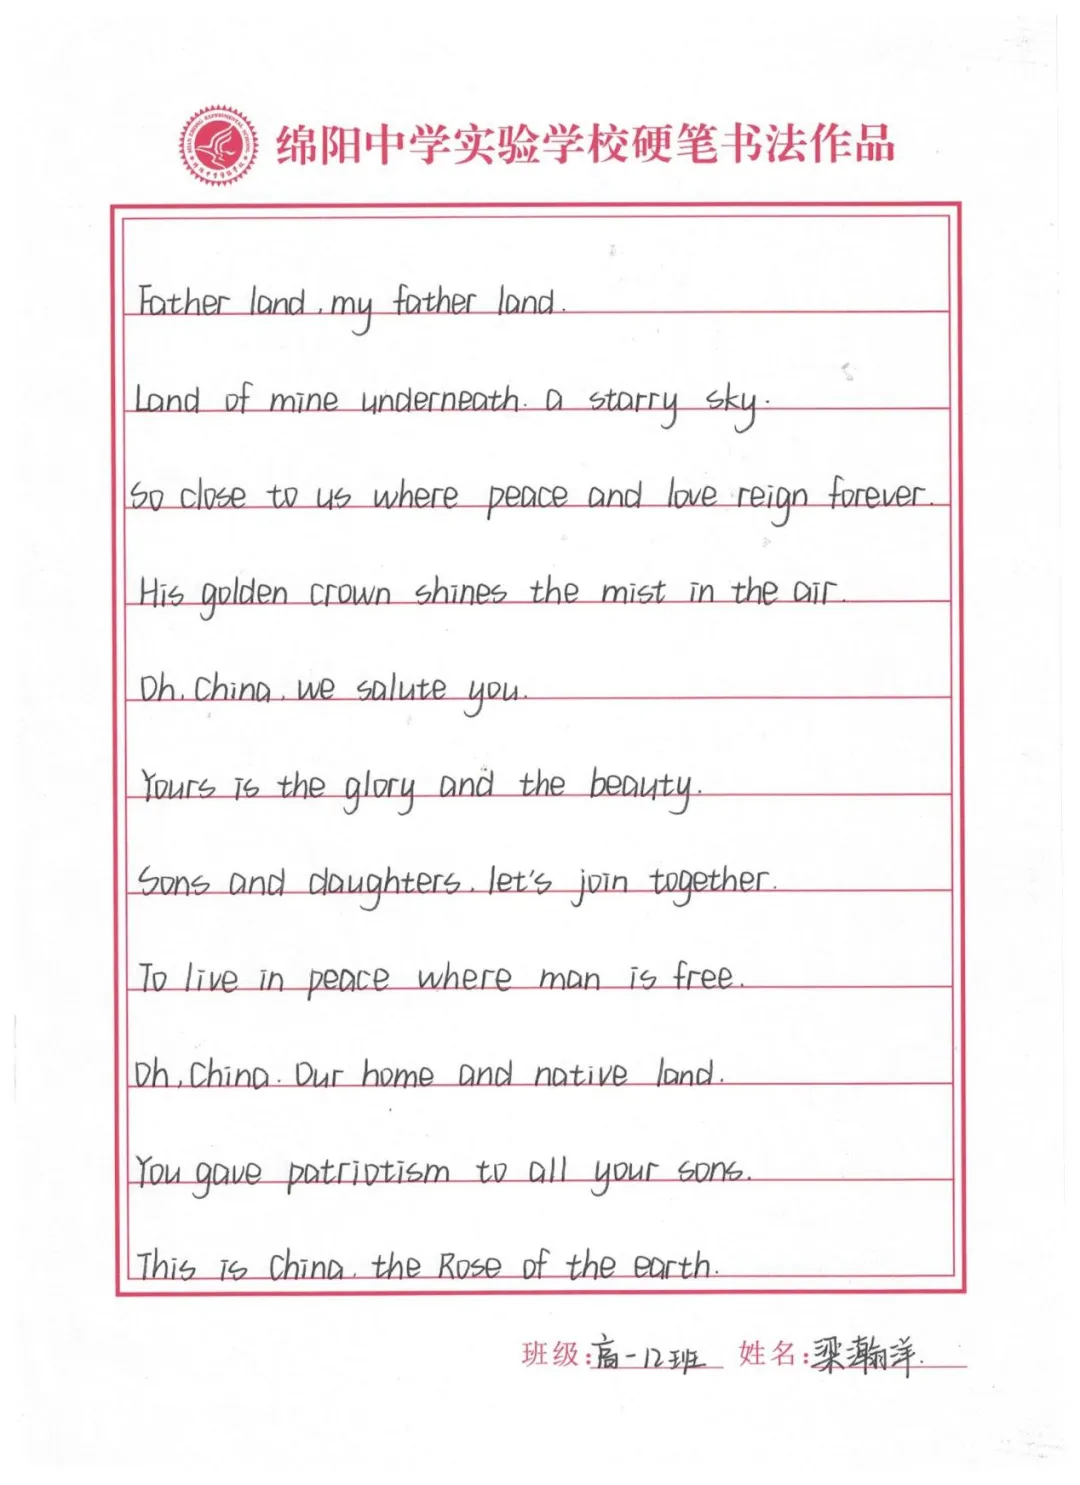 绵阳中学实验学校硬笔书法作品
Father land, my father land.
Land of mine underneath. a starry sky.
So close to us where peace and love reign forever.
His golden crown shines the mist in the air.
Oh, China, we salute you.
Yours is the glory and the beauty.
Sons and daughters, let's join together.
To live in peace where man is free.
Oh, China. Our home and native land.
You gave patriotism to all your sons.
This is China, the Rose of the earth.
班级:高一12班 姓名:梁瀚洋.